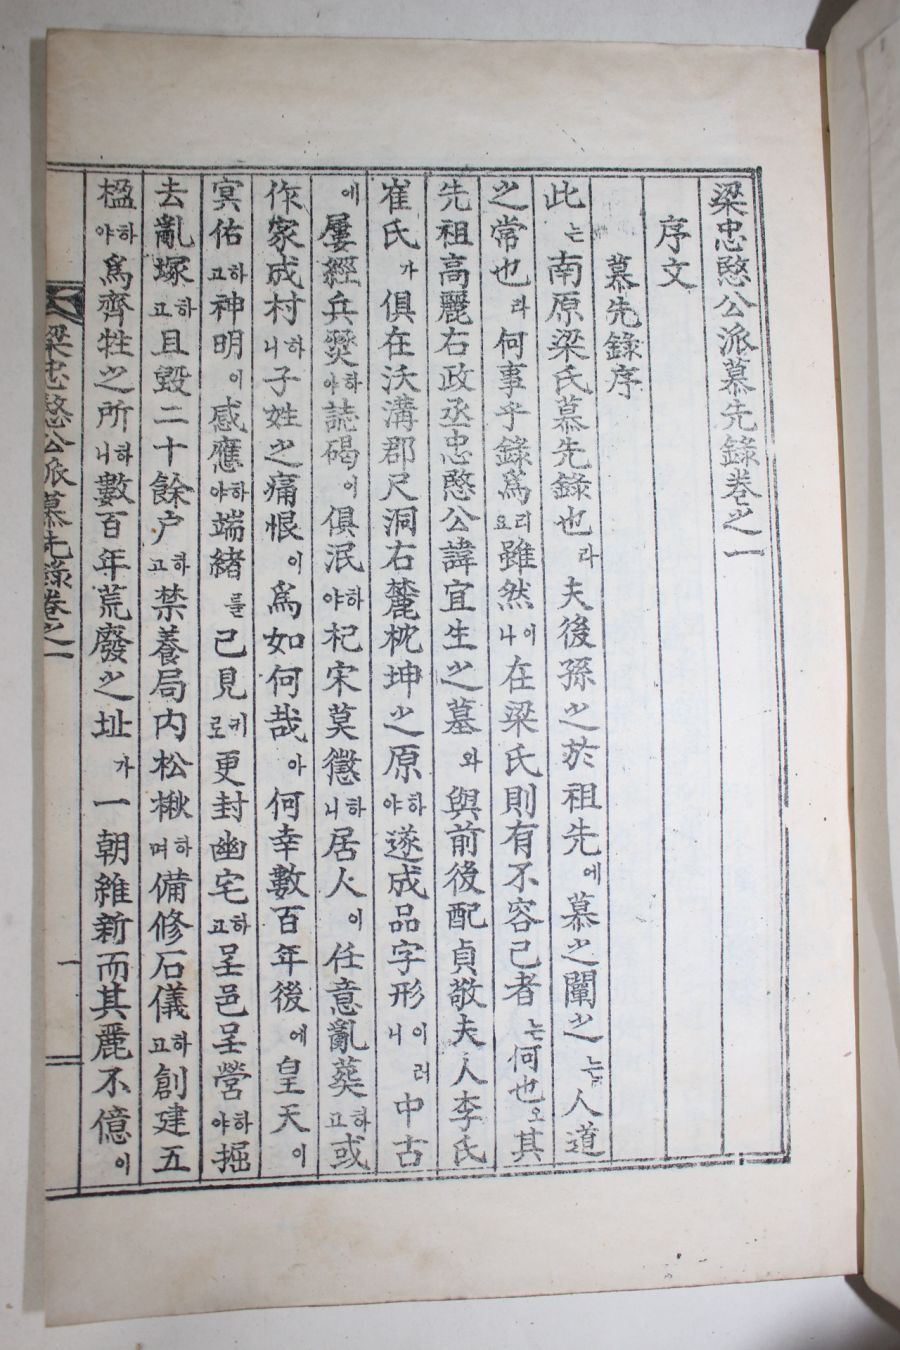 梁忠愍公派慕先錄卷之一
序文
慕先錄序
此는南原梁氏慕先錄也라夫後孫之於祖先에慕之闡之는人道
之常也라何事乎錄爲리요雖然이나在梁氏則有不容已者는何也오其
先祖高麗右政丞忠愍公諱宜生之墓와與前後配貞敬夫人李氏
崔氏가俱在沃溝郡尺洞右麓枕坤之原하야遂成品字形이러니中古
에屢經兵燹하야誌碣이俱泯하야杞宋莫懲하니居人이任意亂葬하고或
作家成村하니子姓之痛恨이爲如何哉아何幸數百年後에皇天이
冥佑하고神明이感應하야端緒를已見키로更封幽宅하고呈邑呈營하야掘
去亂塚하고且毀二十餘户하고禁養局内松楸하며備修石儀하고創建五
楹하야爲齊牲之所하니數百年荒廢之址가一朝維新而其麗不億이
梁忠愍公派慕先錄卷之一
一